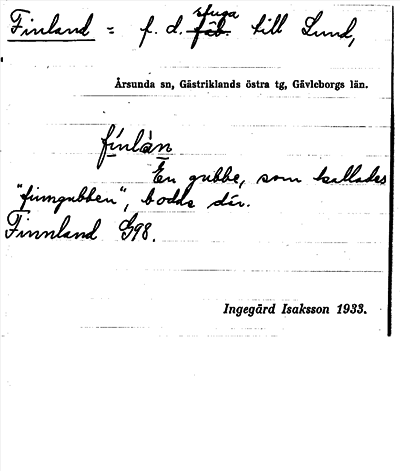 Finland = f. d. stuga till Lund,
Årsunda sn, Gästriklands östra tg, Gävleborgs län.
fínlàn
En gubbe, som kallades
"finngubben", bodde där.
Finnland G98.
Ingegärd Isaksson 1933.